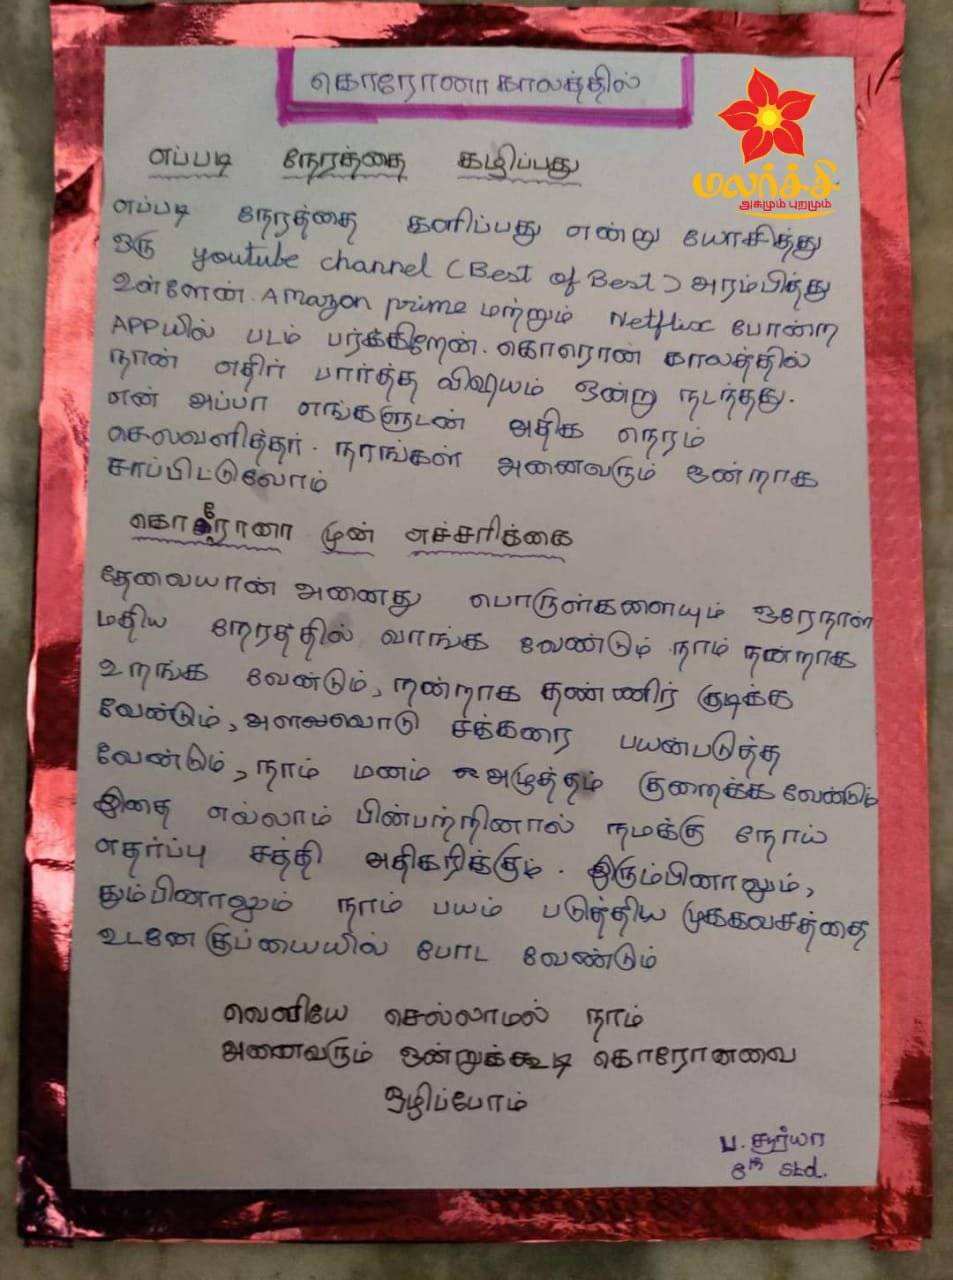 கொரோனா காலத்தில்
மலர்ச்சி
அகமும் புறமும்
எப்படி நேரத்தை கழிப்பது
எப்படி நேரத்தை களிப்பது என்று யோசித்து
ஒரு youtube channel (Best of Best) அரம்பித்து
உள்ளேன். Amazon prime மற்றும் Netflix போன்ற
APPயில் படம் பர்க்கிறேன். கொரொன காலத்தில்
நான் எதிர் பார்த்த விஷயம் ஒன்று நடந்தது.
என் அப்பா எங்களுடன் அதிக நெரம்
செலவளித்தர். நாங்கள் அனைவரும் ஒன்றாக
சாப்பிட்டுவோம்
கொரோனா முன் எச்சரிக்கை
தேவையான் அனைது பொருள்களையும் ஒரேநாள்
மதிய நேரததில் வாங்க வேண்டும் நாம் நன்றாக
உறங்க வேண்டும், நன்றாக தண்ணிர் குடிக்க
வேண்டும், அளவவொடு சக்கரை பயன்படுத்த
வேண்டும், நாம் மனம் அழுத்தம் குறைக்க வேண்டும்
இதை எல்லாம் பின்பற்றினால் நமக்கு நோய்
எதர்ப்பு சத்தி அதிகரிக்கும். இரும்பினாலும்,
தும்பினாலும் நாம் பயம் படுத்திய முககவசத்தை
உடனே குப்யையில் போட வேண்டும்
வெளியே செல்லாமல் நாம்
அனைவரும் ஒன்றுக்கூடி கொரோனவை
ஒழிப்போம்
ப. சூர்யா
8th Std.